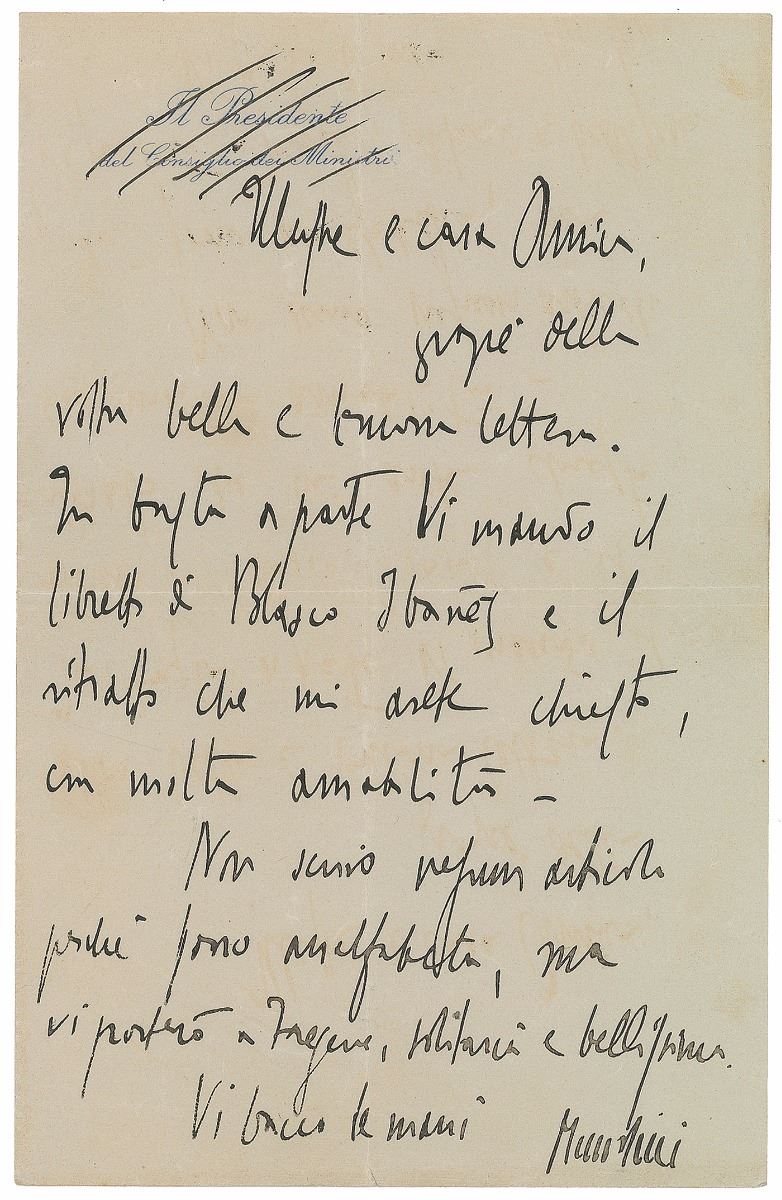 Il Presidente
del Consiglio dei Ministri
Illustre e cara Amica,
grazie della
vostra bella e buona lettera.
In busta a parte Vi mando il
libretto di Blasco Ibañez e il
ritratto che mi avete chiesto,
con molta amabilità –
Non scrivo nessun articolo
perché sono analfabeta, ma
vi porterò a Fregene, solitaria e bellissima.
Vi bacio le mani
Mussolini